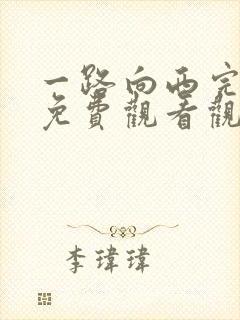 一路向西完
免費觀看觀
李瑋瑋